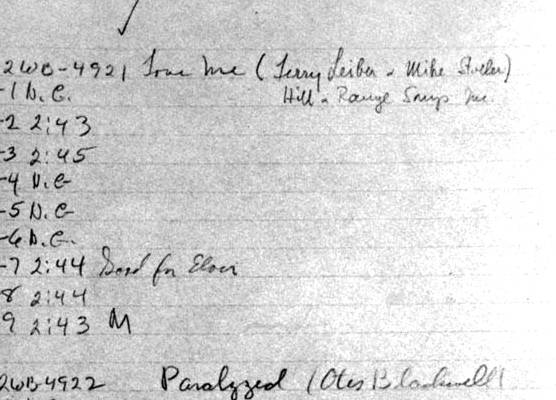 2WB-4921 Love Me (Jerry Leiber & Mike Stoller)
-1 N.C. Hill & Range Songs Inc.
-2 2:43
-3 2:45
-4 N.C
-5 N.C
-6 N.C.
-7 2:44 Good for Elvis
8 2:44
9 2:43 M
2WB-4922 Paralyzed (Otis Blackwell)